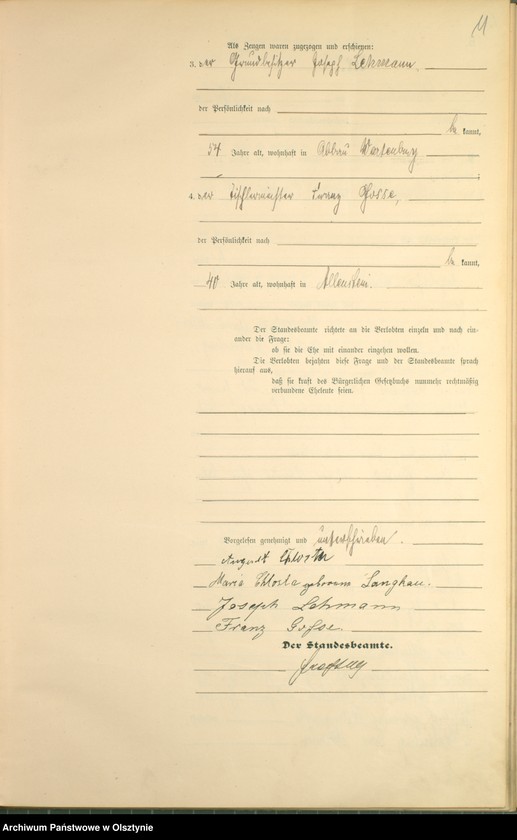 11
Als Zeugen waren zugezogen und erschienen:
3. der Grundbesitzer Joseph Lehmann
der Persönlichkeit nach
be kannt,
54 Jahre alt, wohnhaft in Abbau Wartenburg
4. der Tischlermeister Franz Gosse,
der Persönlichkeit nach
be kannt,
40 Jahre alt, wohnhaft in Allenstein.
Der Standesbeamte richtete an die Verlobten einzeln und nach ein-
ander die Frage:
ob sie die Ehe mit einander eingehen wollen.
Die Verlobten bejahten diese Frage und der Standesbeamte sprach
hierauf aus,
daß sie kraft des Bürgerlichen Gesetzbuchs nunmehr rechtmäßig
verbundene Eheleute seien.
Vorgelesen, genehmigt und unterschrieben.
August
Maria geborene Langkau.
Joseph Lehmann
Franz Gosse.
Der Standesbeamte.
Archiwum Państwowe w Olsztynie